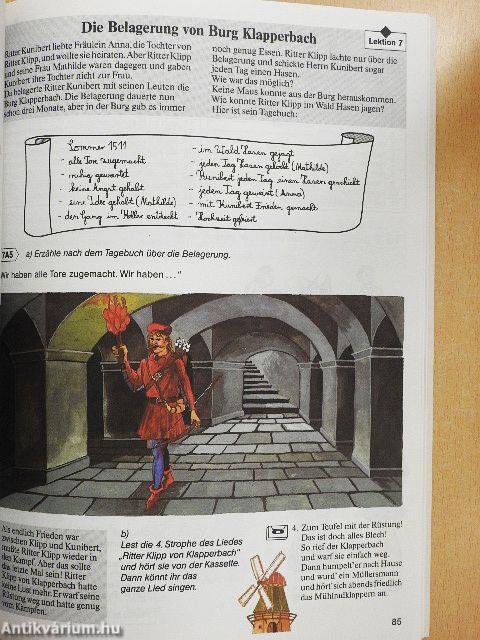 Die Belagerung von Burg Klapperbach
Lektion 7
Ritter Kunibert liebte Fräulein Anna, die Tochter von
Ritter Klipp, und wollte sie heiraten. Aber Ritter Klipp
und seine Frau Mathilde waren dagegen und gaben
Kunibert ihre Tochter nicht zur Frau.
Da belagerte Ritter Kunibert mit seinen Leuten die
Burg Klapperbach. Die Belagerung dauerte nun
schon drei Monate, aber in der Burg gab es immer
noch genug Essen. Ritter Klipp lachte nur über die
Belagerung und schickte Herrn Kunibert sogar
jeden Tag einen Hasen.
Wie war das möglich?
Keine Maus konnte aus der Burg herauskommen.
Wie konnte Ritter Klipp im Wald Hasen jagen?
Hier ist sein Tagebuch:
Sommer 1511
- alle Tore zugemacht
- ruhig gewartet
- keine Angst gehabt
- eine Idee gehabt (Mathilde)
- der Gang im Keller entdeckt
- im Wald Hasen gejagt
- jeden Tag Hasen gekocht (Mathilde)
- Kunibert jeden Tag einen Hasen geschickt
- jeden Tag geweint (Anna)
- mit Kunibert Frieden gemacht
- Hochzeit gefeiert
7A5 a) Erzähle nach dem Tagebuch über die Belagerung.
Wir haben alle Tore zugemacht. Wir haben ..."
Als endlich Frieden war
zwischen Klipp und Kunibert,
mußte Ritter Klipp wieder in
den Kampf. Aber das sollte
das letzte Mal sein! Ritter
Klipp von Klapperbach hatte
keine Lust mehr. Er warf seine
Rüstung weg und hatte genug
vom Kämpfen.
b)
Lest die 4. Strophe des Liedes
„Ritter Klipp von Klapperbach"
und hört sie von der Kassette.
Dann könnt ihr das
ganze Lied singen.
4. Zum Teufel mit der Rüstung!
Das ist doch alles Blech!
So rief der Klapperbach
und warf sie einfach weg.
Dann humpelt'er nach Hause
und wurd' ein Müllersmann
und hört'sich abends friedlich
das Mühlradklappern an.
85
Antikvárium.hu